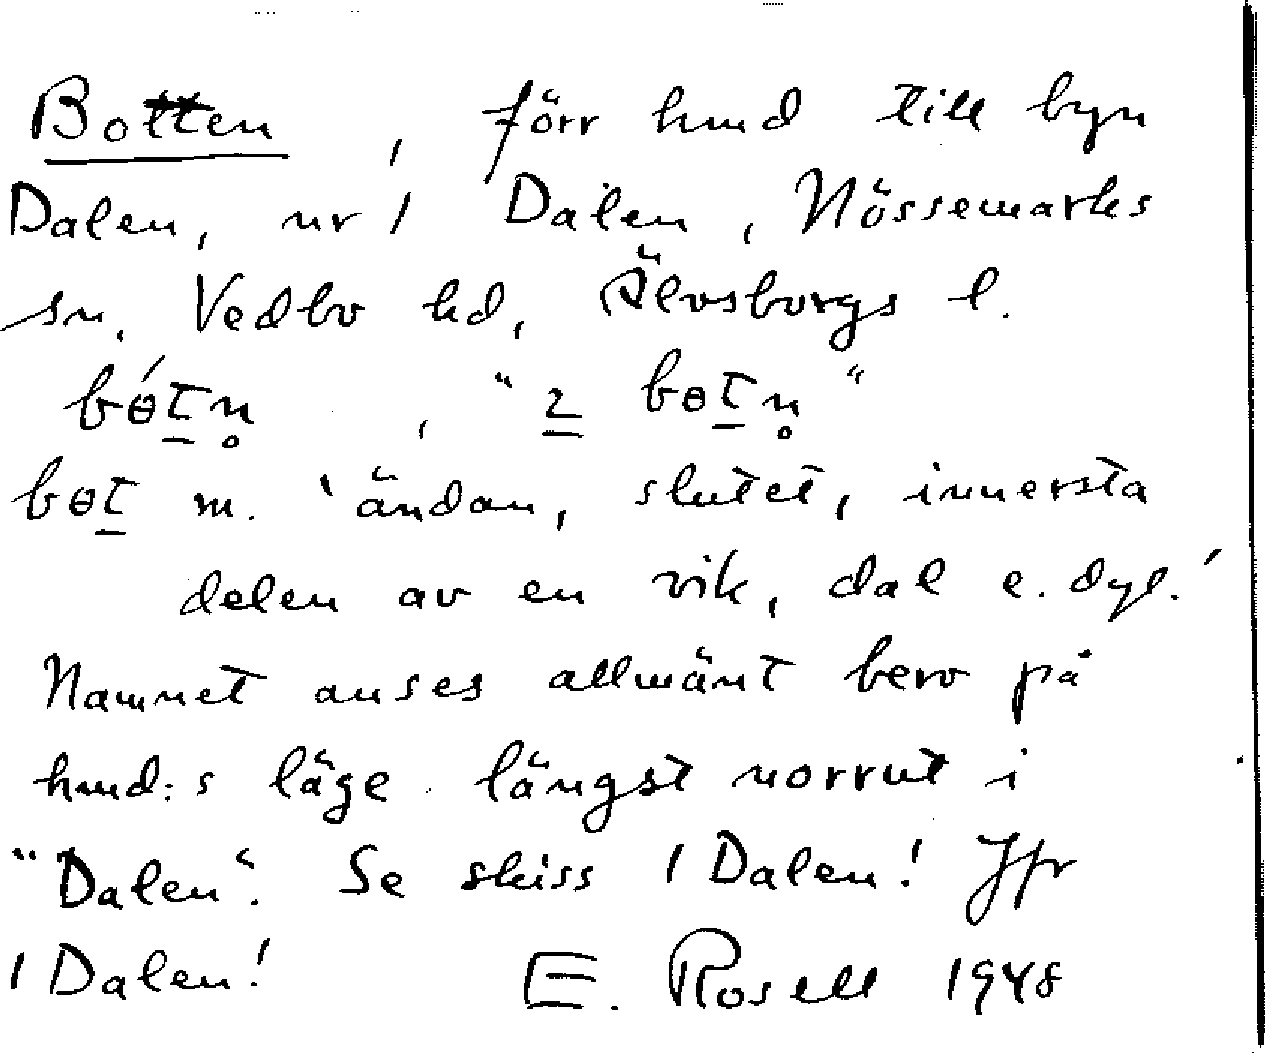 Botten, förr hmd till byn
Dalen, nr 1 Dalen, Nössemarks
sn, Vedbo hd, Älvsborgs l.
bɵ́t̲n̥, "2 bɵt̲n̥"
bɵt̲ m. 'ändan, slutet, innersta
delen av en vik, dal e. dyl.'
Namnet anses allmänt bero på
hmd:s läge längst norrut i
"Dalen". Se skiss 1 Dalen! Jfr
1 Dalen! E. Rosell 1948